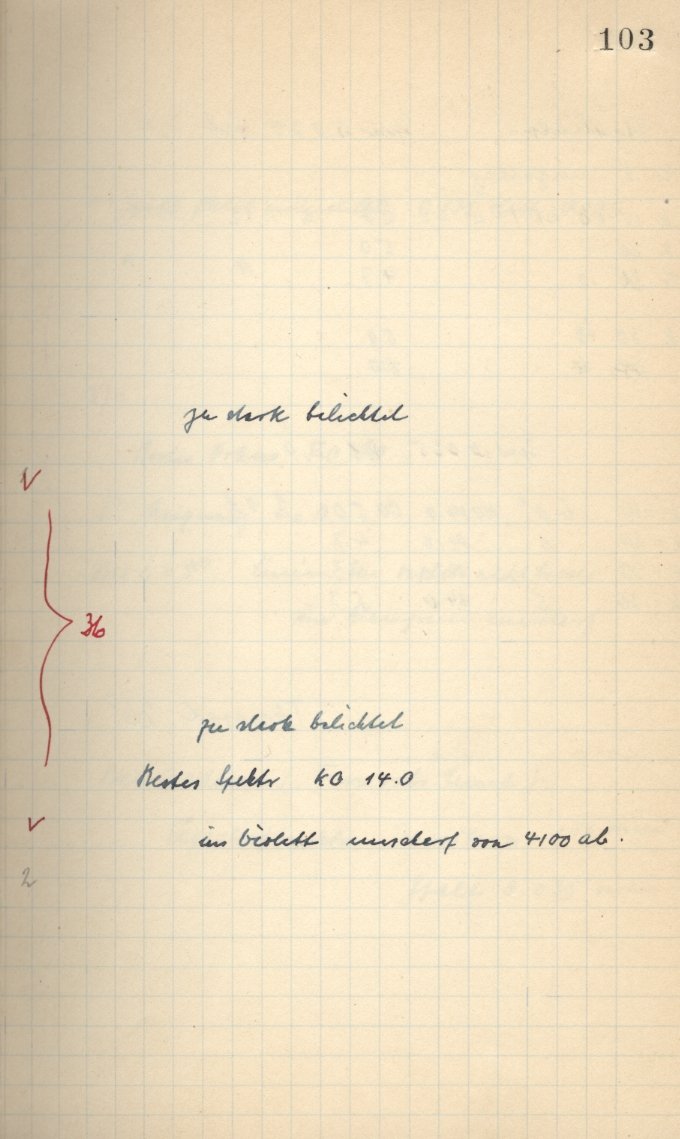 103
zu stark belichtet
V
36
zu stark belichtet
Bestes Spektr KO 14.0
V
im Violett unscharf von 4100 ab.
2